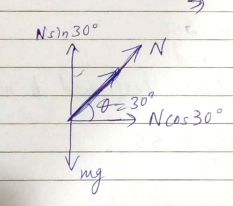 Nsin30°
N
θ=30°
Ncos30°
mg